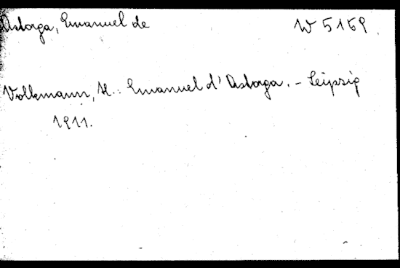 Astorga, Emanuel de W 5159.
Volkmann, H.: Emanuel d'Astorga. - Leipzig
1911.